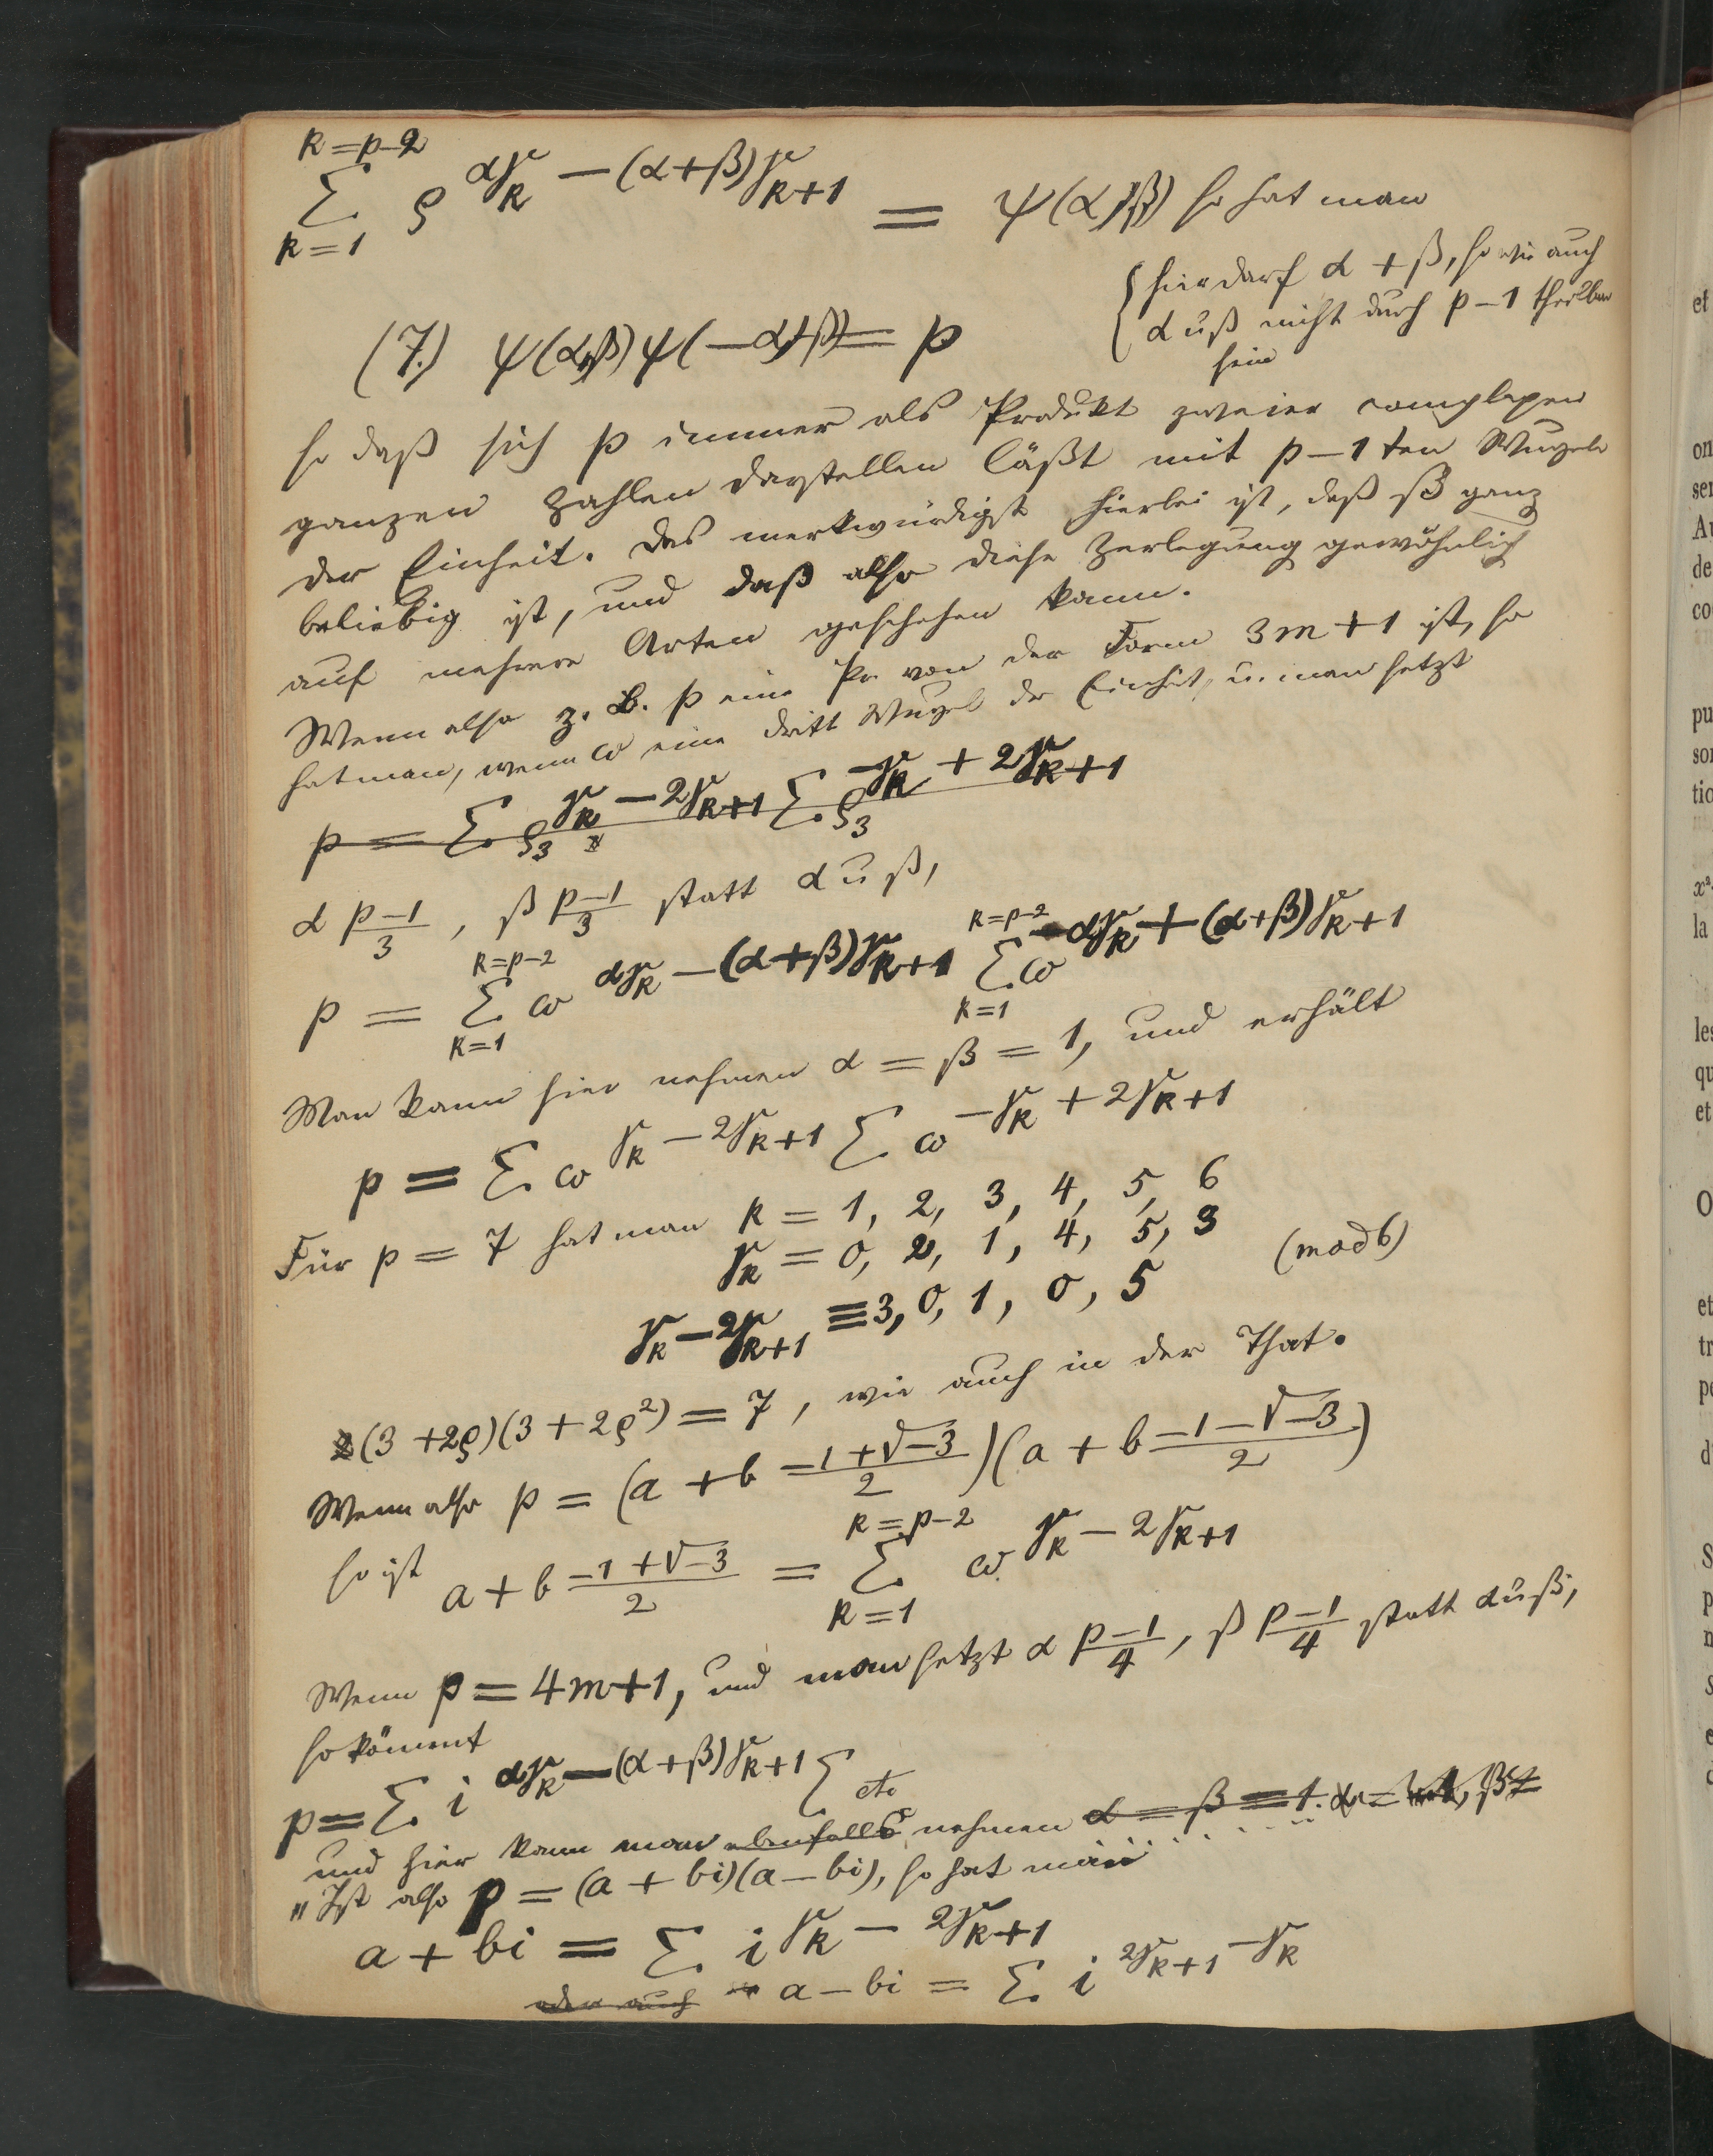 k=p-2
∑ ρ^{αγ_k -(α+β)γ_{k+1}} = ψ(α,β) so hat man
k=1
{hier darf α + β, so wie auch
α u β nicht durch p-1 theilbar
sein
(7.) ψ(α,β)ψ(-α,-β) = p
so daß sich p immer als Produkt zweier complexen
ganzen Zahlen darstellen läßt mit p-1ten Wurzeln
der Einheit. Das merkwürdigste hierbei ist, daß β ganz
beliebig ist, und daß also diese Zerlegung gewöhnlich
auf mehrere Arten geschehen kann.
Wenn also z. B. p eine Pr. von der Form 3m+1 ist, so
hat man, wenn ω eine dritte Wurzel der Einheit, u. man setzt
p = ∑ ρ_3^{γ_k -2γ_{k+1}} ∑ ρ_3^{-γ_k +2γ_{k+1}}
α (p-1)/3, β (p-1)/3 statt α u β,
k=p-2 k=p-2
p = ∑ ω^{αγ_k -(α+β)γ_{k+1}} ∑ ω^{-αγ_k +(α+β)γ_{k+1}}
k=1 k=1
Man kann hier nehmen α = β = 1, und erhält
p = ∑ ω^{γ_k -2γ_{k+1}} ∑ ω^{-γ_k +2γ_{k+1}}
Für p = 7 hat man k = 1, 2, 3, 4, 5, 6
γ_k = 0, 2, 1, 4, 5, 3 (mod 6)
γ_k -2γ_{k+1} ≡ 3, 0, 1, 0, 5
(3 +2ρ)(3 +2ρ²) = 7, wie auch in der That.
Wenn also p = (a + b (-1+√-3)/2)(a + b (-1-√-3)/2)
k=p-2
so ist a + b (-1+√-3)/2 = ∑ ω^{γ_k -2γ_{k+1}}
k=1
Wenn p = 4m+1, und man setzt α (p-1)/4, β (p-1)/4 statt α u β,
so kömmt
p = ∑ i^{αγ_k -(α+β)γ_{k+1}} ∑ etc
und hier kann man ebenfalls nehmen α = β = 1.
"Ist also p = (a + bi)(a - bi), so hat man
a + bi = ∑ i^{γ_k -2γ_{k+1}}
oder auch a - bi = ∑ i^{2γ_{k+1} -γ_k}
et
on
ser
de
co
pu
so
tio
la
les
qu
et
O
et
tr
S